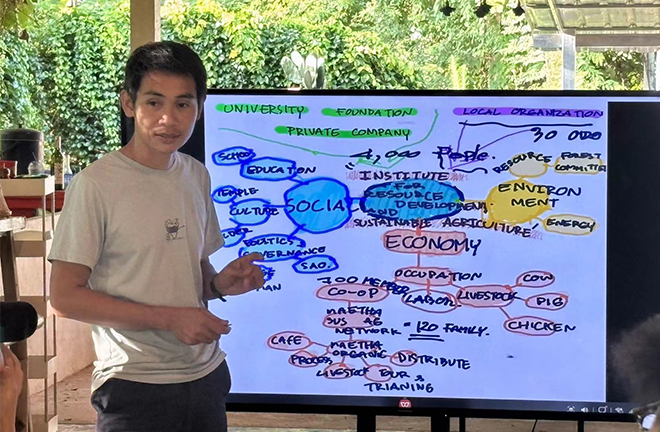 UNIVERSITY FOUNDATION LOCAL ORGANIZATION
PRIVATE COMPANY
30 000
1,000 People.
SCHOOL
EDUCATION
TEMPLE
CULTURE
SOCIA
POLITICS
GOVERNANCE
SAO.
"INSTITUTE
FOR
RESOURCE
DEVELOPMENT
AND
SUSTAINABLE AGRICULTURE"
RESOURCE
FOREST
COMMITTEE
ENVIRON
MENT
ENERGY
ECONOMY
OCCUPATION
700 MEMBER
CO-OP
LABOR
LIVESTOCK
COW
PIG
CHICKEN
MAETHA
SUS AG
NETWORK = 120 FAMILY.
MAETHA
ORGANIC
CAFE
PROCESS
LIVESTOCK
DISTRIBUTE
TRIANING